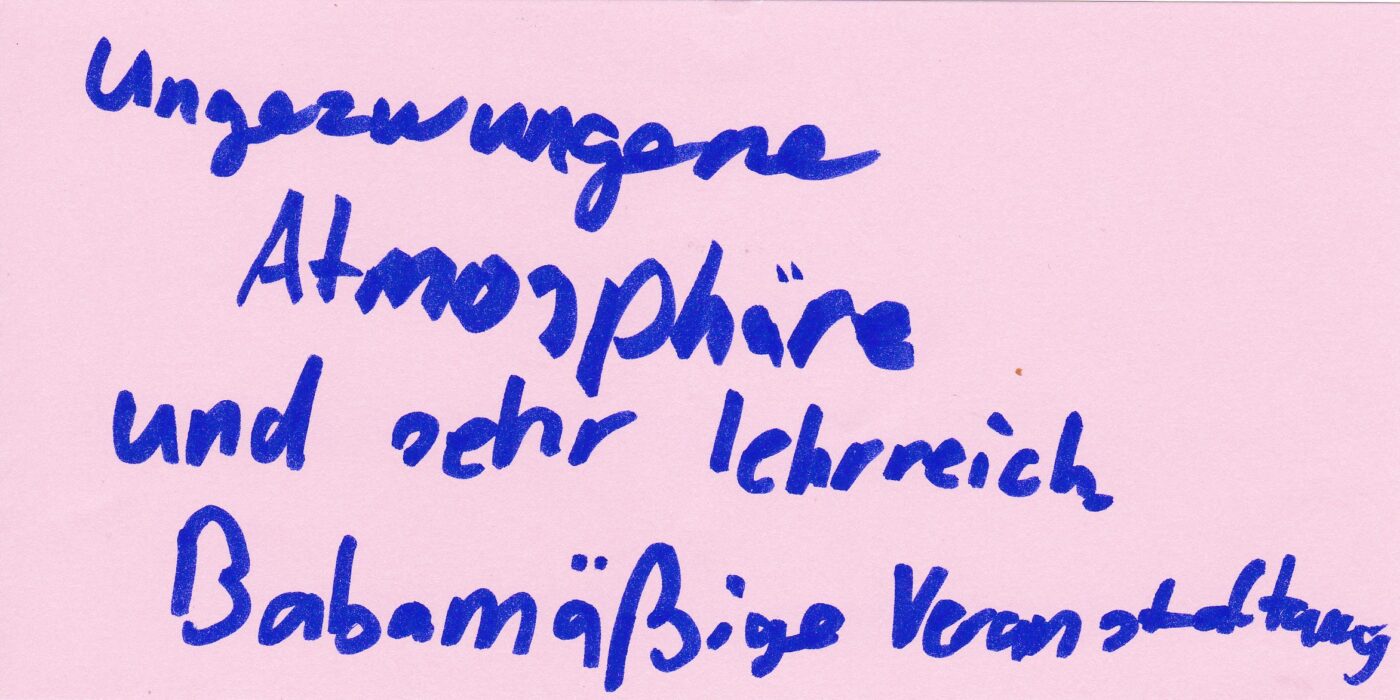 Ungezwungene
Atmosphäre
und sehr lehrreich
Babamäßige Veranstaltung